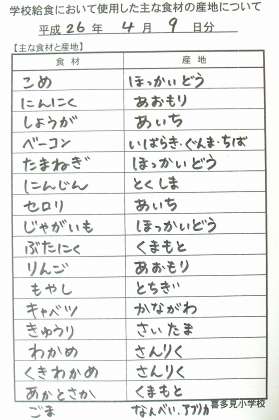 学校給食において使用した主な食材の産地について
平成 26 年 4 月 9 日分
【主な食材と産地】
食材 産地
こめ ほっかいどう
にんにく あおもり
しょうが あいち
ベーコン いばらき・ぐんま・ちば
たまねぎ ほっかいどう
にんじん とくしま
セロリ あいち
じゃがいも ほっかいどう
ぶたにく くまもと
りんご あおもり
もやし とちぎ
キャベツ かながわ
きゅうり さいたま
わかめ さんりく
くきわかめ さんりく
あかとさか くまもと
ごま なんべい・アフリカ
喜多見小学校